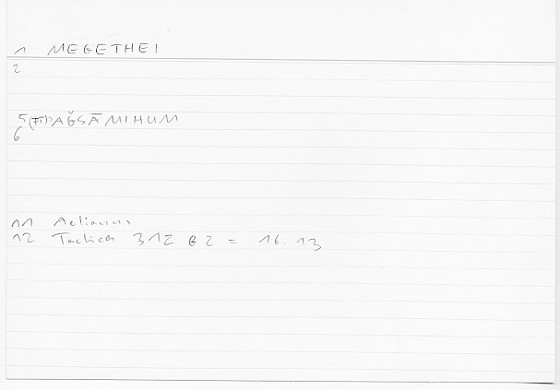 1 MEGETHEI
2
5 AǦSĀMIHUM
6
11 Aelianus
12 Tactica 312 2 = 16.13